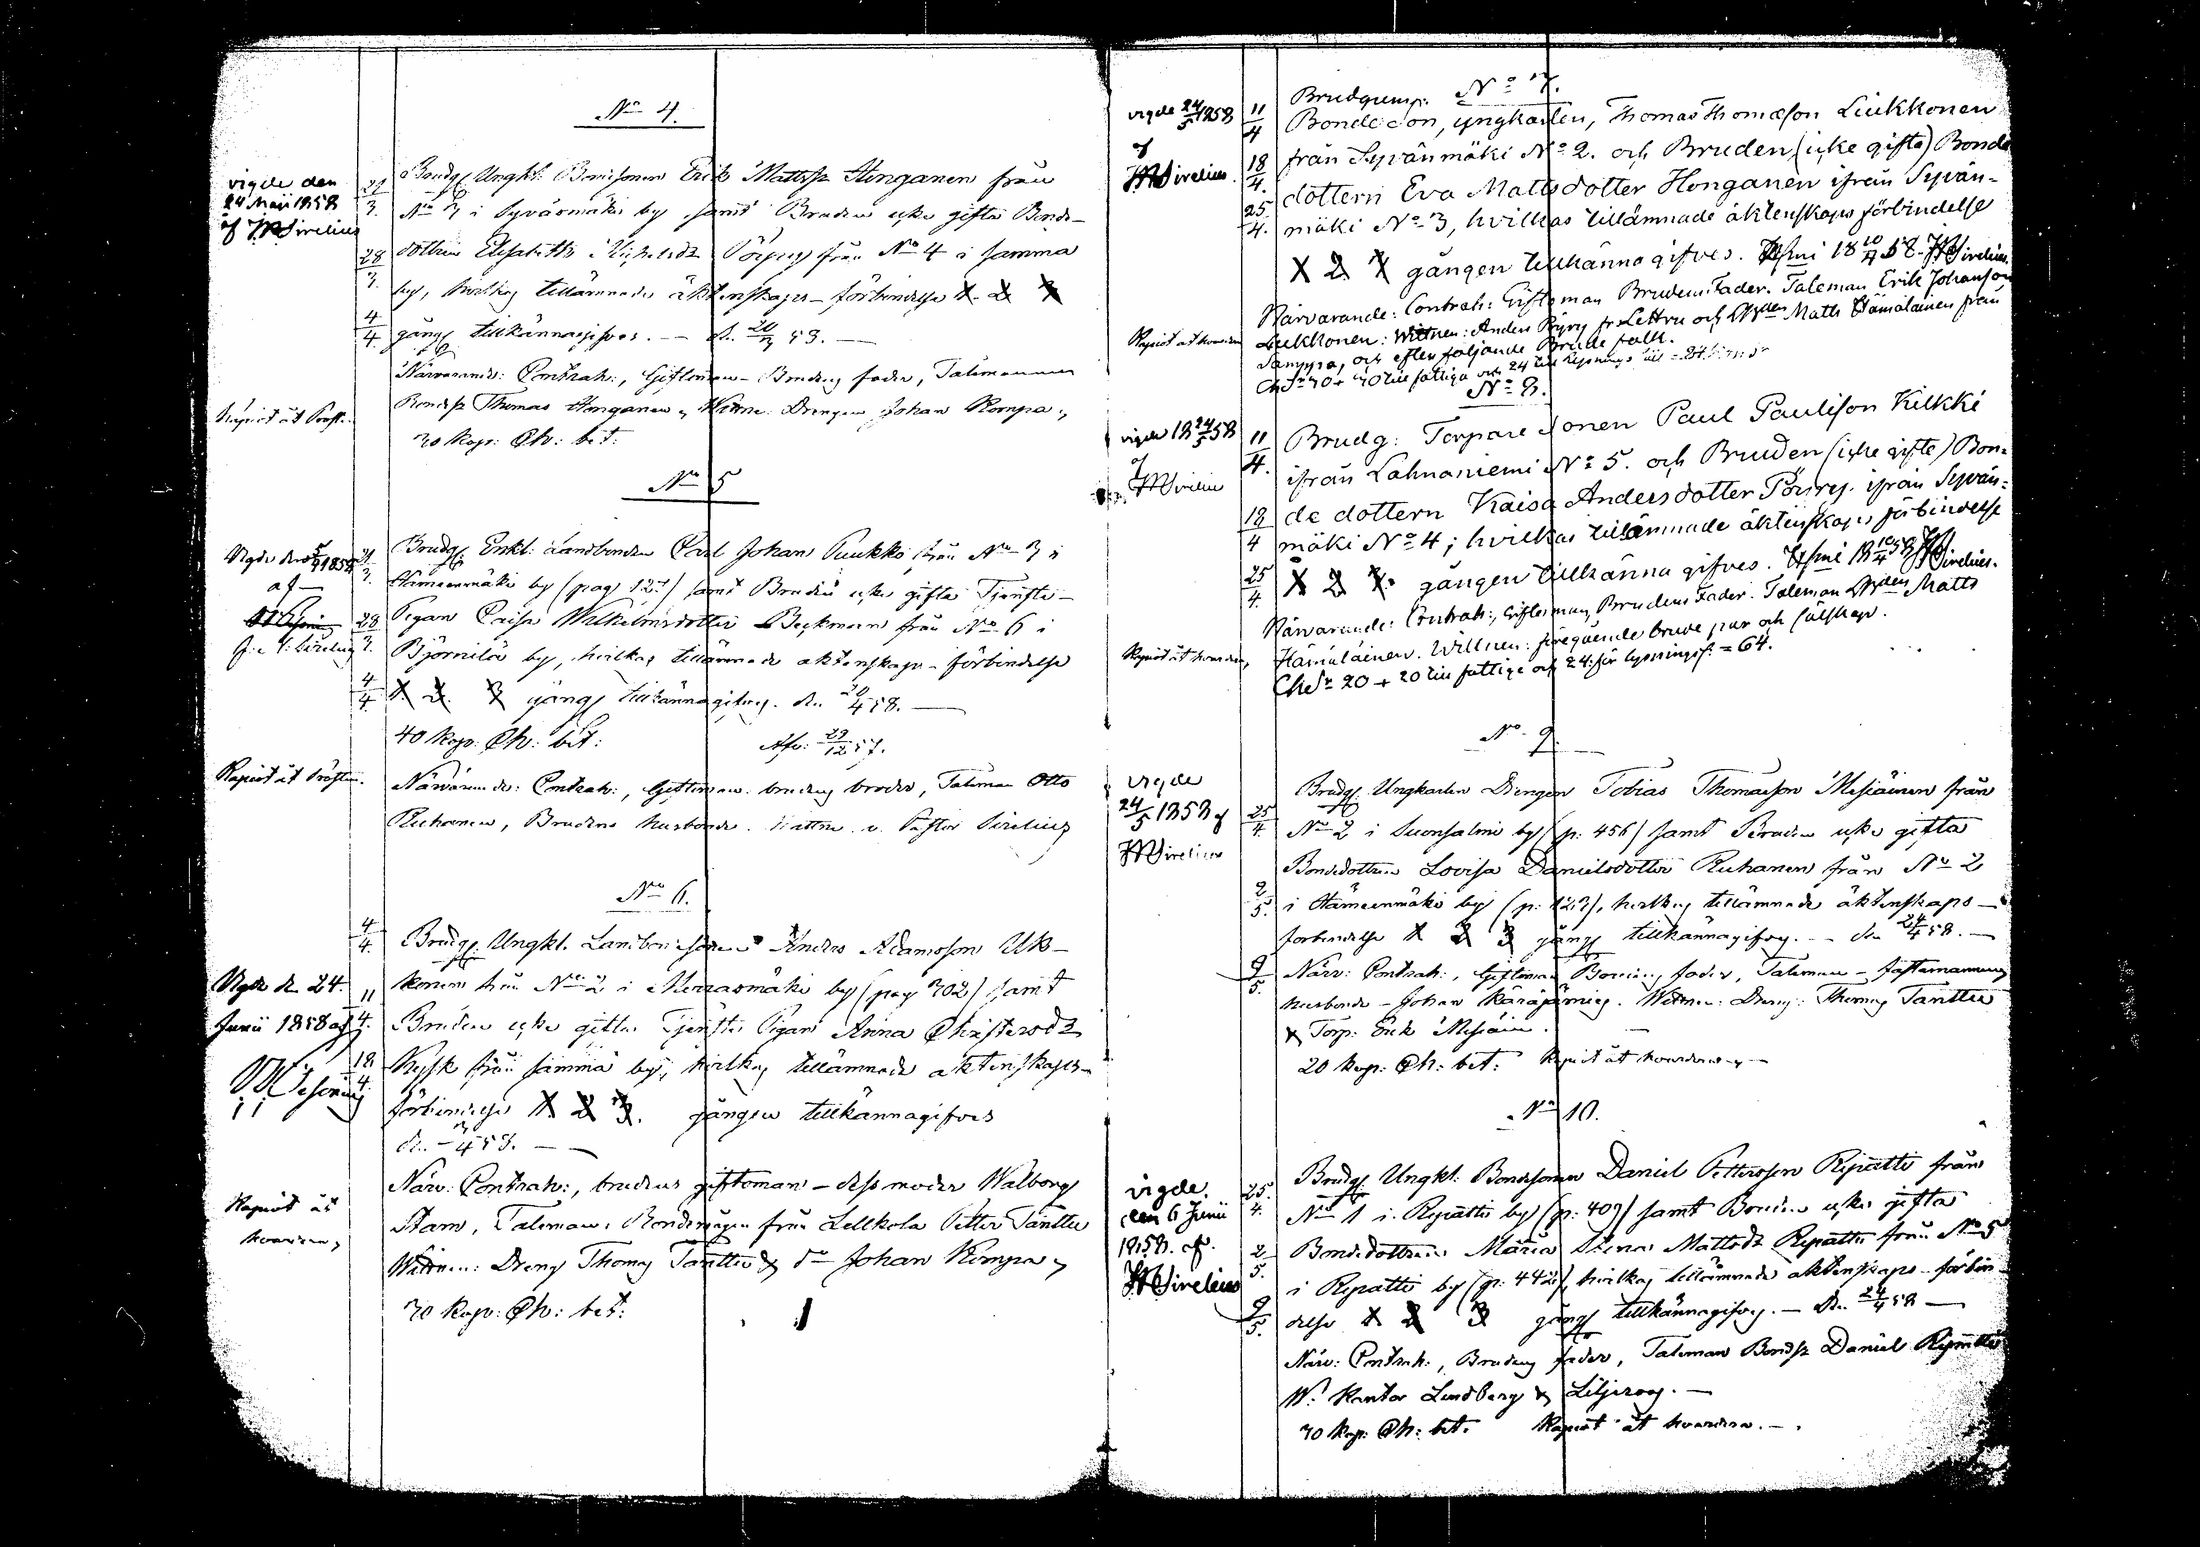 No 4.
vigde den
24 Maji 1858
af JWSirelius
21/3.
28/3.
4/4.
Brudg. Ungkl. Bondsonen Erik Mattss Honganen från
No 3 i Syvänmäki by samt Bruden icke gifta Bonde-
dottren Elisabetha Michelsdr Pöyry från No 4 i samma
by, hvilkas tillämnade äktenskaps-förbindelse 1. 2 3
gång tillkännagifves. — d. 20/3 58. —
Närvarande: Contrah:, Giftoman - Brudens fader, Talemannen
Bondess Thomas Honganen, Wittne: Drengen Johan Kompa,
30 kop: Ch: bet:
No 5
Vigde den 5/4 1858
af
21/3.
28/3.
4/4
Brudg. Enkl. Landbonden Carl Johan Puukko från No 3 i
Hämeenmäki by (pag 127) samt Bruden icke gifta Tjenste-
Pigan Caisa Wilhelmsdotter Beckman från No 6 i
Björnilä by, hvilkas tillämnade äktenskaps-förbindelse
1. 2. 3 gång tillkännagifves. den 20/4 58. —
40 kop: Ch: bet: Afv: 29/12 57.
Närvarande: Contrah:, Giftoman: brudens broder, Taleman Otto
Ruhanen, Brudens husbonde. Wittne v. Pastor Sirelius
No 6.
Vigde den 24
Junii 1858 af
4/4.
11/4.
18/4.
Brudg. Ungkl. Landbondesonen Anders Adamsson Uk-
konen från No 2 i Kerrasmäki by (pag 302) samt
Bruden icke gifta Tjenste Pigan Anna Christersdr
Kysk från samma by, hvilkas tillämnade äktenskaps-
förbindelse 1. 2 3. gången tillkännagifves
d. 3/4 58. —
Närv: Contrah:, brudens giftoman - dess moder Walborg
Stam, Taleman: Bondemågen från Lellkola Petter Tanttu
Wittnen: Dreng Thomas Tanttu & do Johan Kompa,
30 kop: Ch: bet:
No 7.
vigde 24/5 1858
af
JWSirelius.
11/4
18/4.
25/4.
Brudgum:
Bonde son, yngkarlen, Thomas Thomæson Liukkonen
från Syvänmäki No 2. och Bruden (icke gifta) Bonde
dottern Eva Mattsdotter Honganen ifrån Syvän-
mäki No 3, hvilkas tillämnade äktenskaps förbindelse
1 2 3 gången tillkänna gifves. 18 10/4 58. JWSirelius.
Närvarande: Contrah: Giftoman Brudens Fader. Taleman Erik Johanson
Liukkonen: Wittnen: Anders Pöyry fr Lettru och Matts Hämäläinen från
Samppa, och efter följande Brude folk.
No 8.
vigde 18 24/5 58
af
JWSirelius
11/4.
18/4
25/4.
Brudg: Torpare sonen Paul Paulison Kilkki
ifrån Lahnaniemi No 5. och Bruden (icke gifte) Bon-
de dottern Kaisa Andersdotter Pöyry. ifrån Syvän-
mäki No 4; hvilkas tillämnade äktenskaps förbindelse
1 2 3. gången tillkänna gifves. 18 10/4 58 JWSirelius.
Närvarande: Contrah:, Giftoman, Brudens Fader. Taleman Matts
Hämäläinen. Wittnen: föregående brude par och sälskap.
20 + 20 till fattige och 24. för lysningss: = 64.
No 9
vigde
24/5 1858 af
JWSirelius
25/4.
2/5.
9/5.
Brudg. Ungkarlen Drengen Tobias Thomasson Mesiäinen från
No 2 i Suonsalmi by (p: 456) samt Bruden icke gifta
Bondedottren Lovisa Danielsdotter Ruhanen från No 2
i Hämeenmäki by (p: 123), hvilkas tillämnade äktenskaps-
förbindelse 1 2 3 gång tillkännagifves. — den 24/4 58. —
Närv: Contrah:, Giftoman Brudens fader, Taleman - fästemannens
husbonde - Johan Käräjämies. Wittnen: Dreng: Thomas Tanttu
& Torp: Erik Mesiäin.
20 kop: Ch: bet:
No 10.
vigde.
den 6 Junii
1858. af.
JWSirelius
25/4.
2/5.
9/5.
Brudg. Ungkl. Bondesonen Daniel Pettersson Repatti från
No 1 i Repatti by (p: 409) samt Bruden icke gifta
Bondedottren Maria Stina Mattsdr Repatti från No 5
i Repatti by, hvilkas tillämnade äktenskaps-förbin-
delse 1 2 3 gång tillkännagifves. — d. 24/4 58 —
Närv: Contrah:, Brudens fader, Taleman Bondss Daniel Repatti
W: Kantor Lindberg & Liljeroos. —
30 kop: Ch: bet.